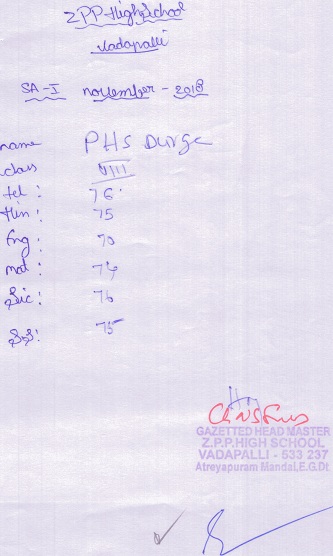 ZPP High School
Vadapalli
SA-I november - 2018
name PHS Durga
class VIII
tel : 76
Hin : 75
Eng : 70
mat : 74
Sic : 76
S.S : 75
GAZETTED HEAD MASTER
Z.P.P.HIGH SCHOOL
VADAPALLI - 533 237
Atreyapuram Mandal,E.G.Dt.